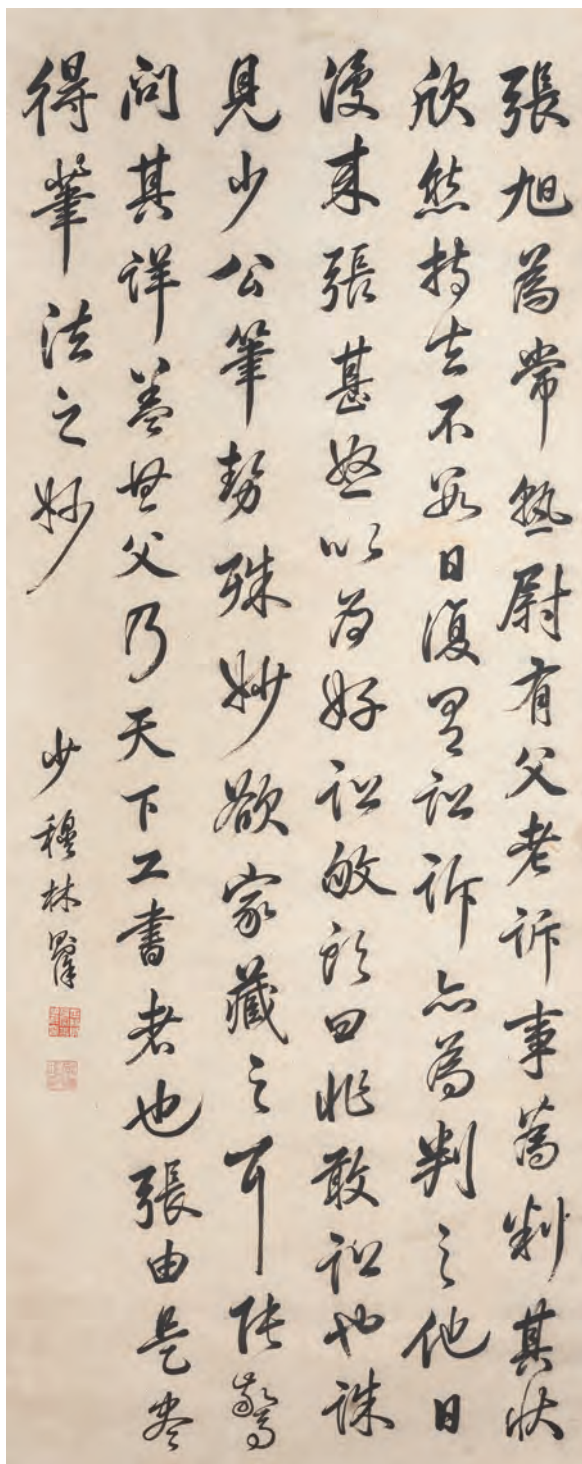 張旭為常熟尉有父老訴事為判其狀
欣然持去不数日復訟訴亦為判之他日
復来張甚怒以为好訟敂頭曰非敢訟也誠
見少公筆勢殊妙欲家藏之耳張驚
問其詳蓋其父乃天下工書者也張由是尽
得筆法之妙
少穆林則徐